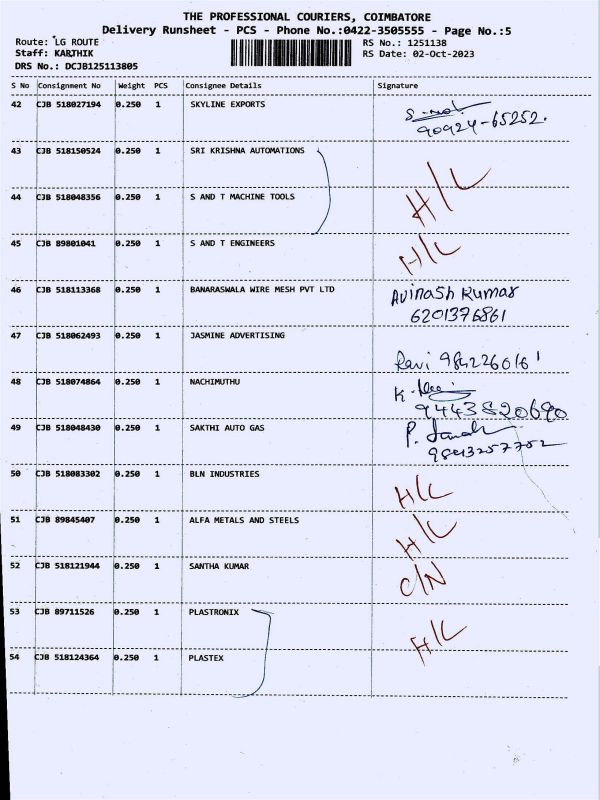 THE PROFESSIONAL COURIERS, COIMBATORE
Delivery Runsheet - PCS - Phone No.:0422-3505555 - Page No.:5
Route: LG ROUTE RS No.: 1251138
Staff: KARTHIK RS Date: 02-Oct-2023
DRS No.: DCJB125113805
S No Consignment No Weight PCS Consignee Details Signature
42 CJB 518027194 0.250 1 SKYLINE EXPORTS
90924-65252.
43 CJB 518150524 0.250 1 SRI KRISHNA AUTOMATIONS
H/L
44 CJB 518048356 0.250 1 S AND T MACHINE TOOLS
45 CJB 89801041 0.250 1 S AND T ENGINEERS H/L
46 CJB 518113368 0.250 1 BANARASWALA WIRE MESH PVT LTD Avinash Kumar
6201376861
47 CJB 518062493 0.250 1 JASMINE ADVERTISING
Ravi 9842260161
48 CJB 518074864 0.250 1 NACHIMUTHU K.
9443820690
49 CJB 518048430 0.250 1 SAKTHI AUTO GAS P.
9843257752
50 CJB 518083302 0.250 1 BLN INDUSTRIES H/L
51 CJB 89845407 0.250 1 ALFA METALS AND STEELS H/L
52 CJB 518121944 0.250 1 SANTHA KUMAR C/N
53 CJB 89711526 0.250 1 PLASTRONIX H/L
54 CJB 518124364 0.250 1 PLASTEX